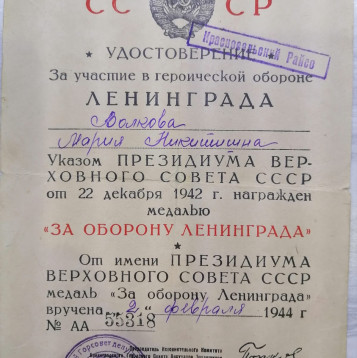 СССР
Красносельский Райво
★ УДОСТОВЕРЕНИЕ ★
За участие в героической обороне
ЛЕНИНГРАДА
Волкова
Мария Никитична
Указом ПРЕЗИДИУМА ВЕР-
ХОВНОГО СОВЕТА СССР
от 22 декабря 1942 г. награжден
медалью
«ЗА ОБОРОНУ ЛЕНИНГРАДА»
★
От имени ПРЕЗИДИУМА
ВЕРХОВНОГО СОВЕТА СССР
медаль «За оборону Ленинграда»
вручена „2“ февраля 1944 г
№ АА 55318
Председатель Исполнительного Комитета